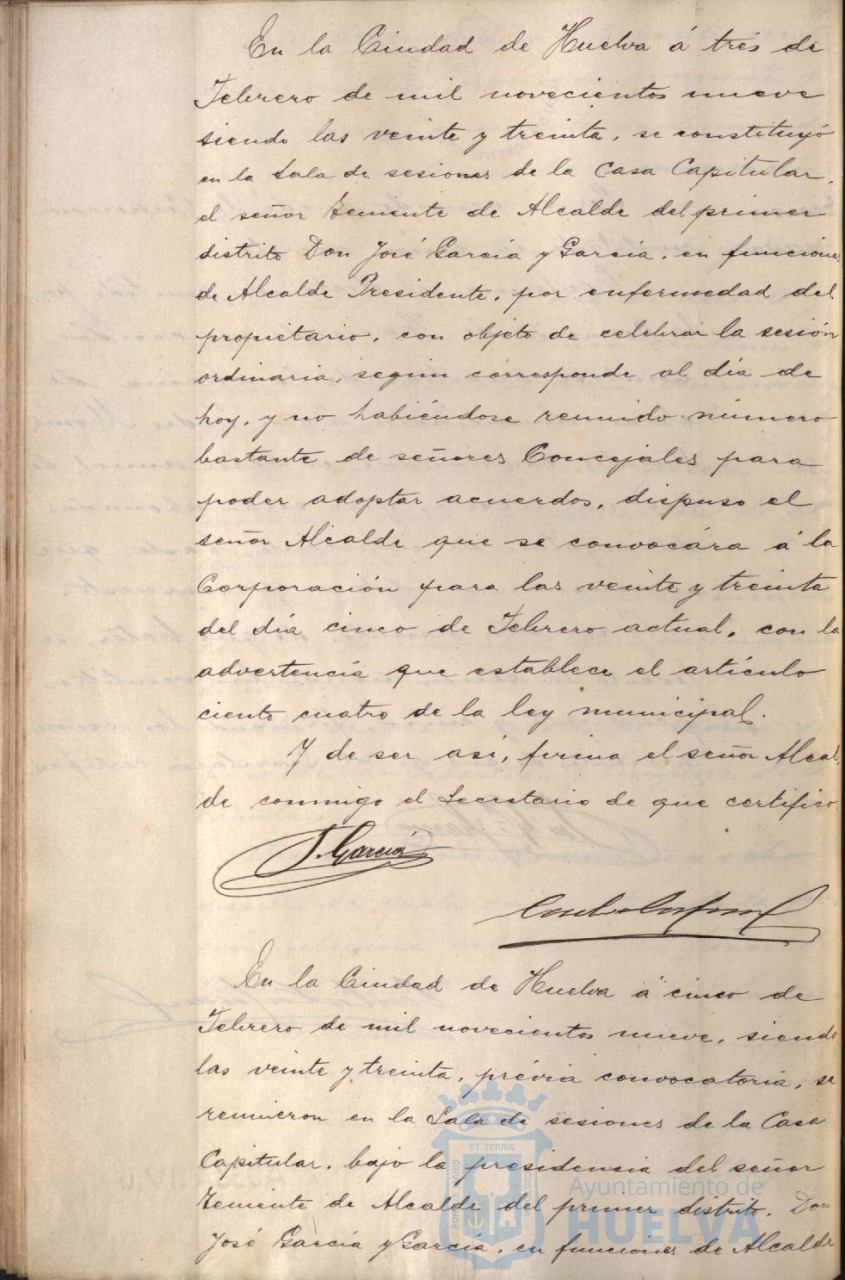 En la Ciudad de Huelva á tres de
Febrero de mil novecientos nueve
siendo las veinte y treinta, se constituyó
en la Sala de sesiones de la Casa Capitular,
el señor Teniente de Alcalde del primer
distrito Don José García y García, en funciones
de Alcalde Presidente, por enfermedad del
propietario, con objeto de celebrar la sesión
ordinaria, segun corresponde al día de
hoy, y no habiéndose reunido número
bastante de señores Concejales para
poder adoptar acuerdos, dispuso el
señor Alcalde que se convocára á la
Corporación para las veinte y treinta
del día cinco de Febrero actual, con la
advertencia que establece el artículo
ciento cuatro de la ley municipal.
Y de ser así, firma el señor Alcal
de conmigo el Secretario de que certifico.
J. García
En la Ciudad de Huelva á cinco de
Febrero de mil novecientos nueve, siendo
las veinte y treinta, prévia convocatoria, se
reunieron en la Sala de sesiones de la Casa
Capitular, bajo la presidencia del señor
Teniente de Alcalde del primer distrito, Don
José García y García, en funciones de Alcalde
ET TERRÆ
Ayuntamiento de
HUELVA